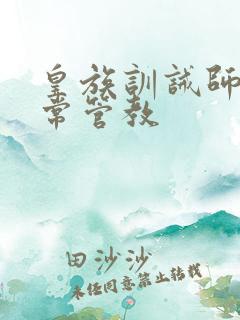 皇族訓誡師
常管教
田沙沙
未经同意禁止转载